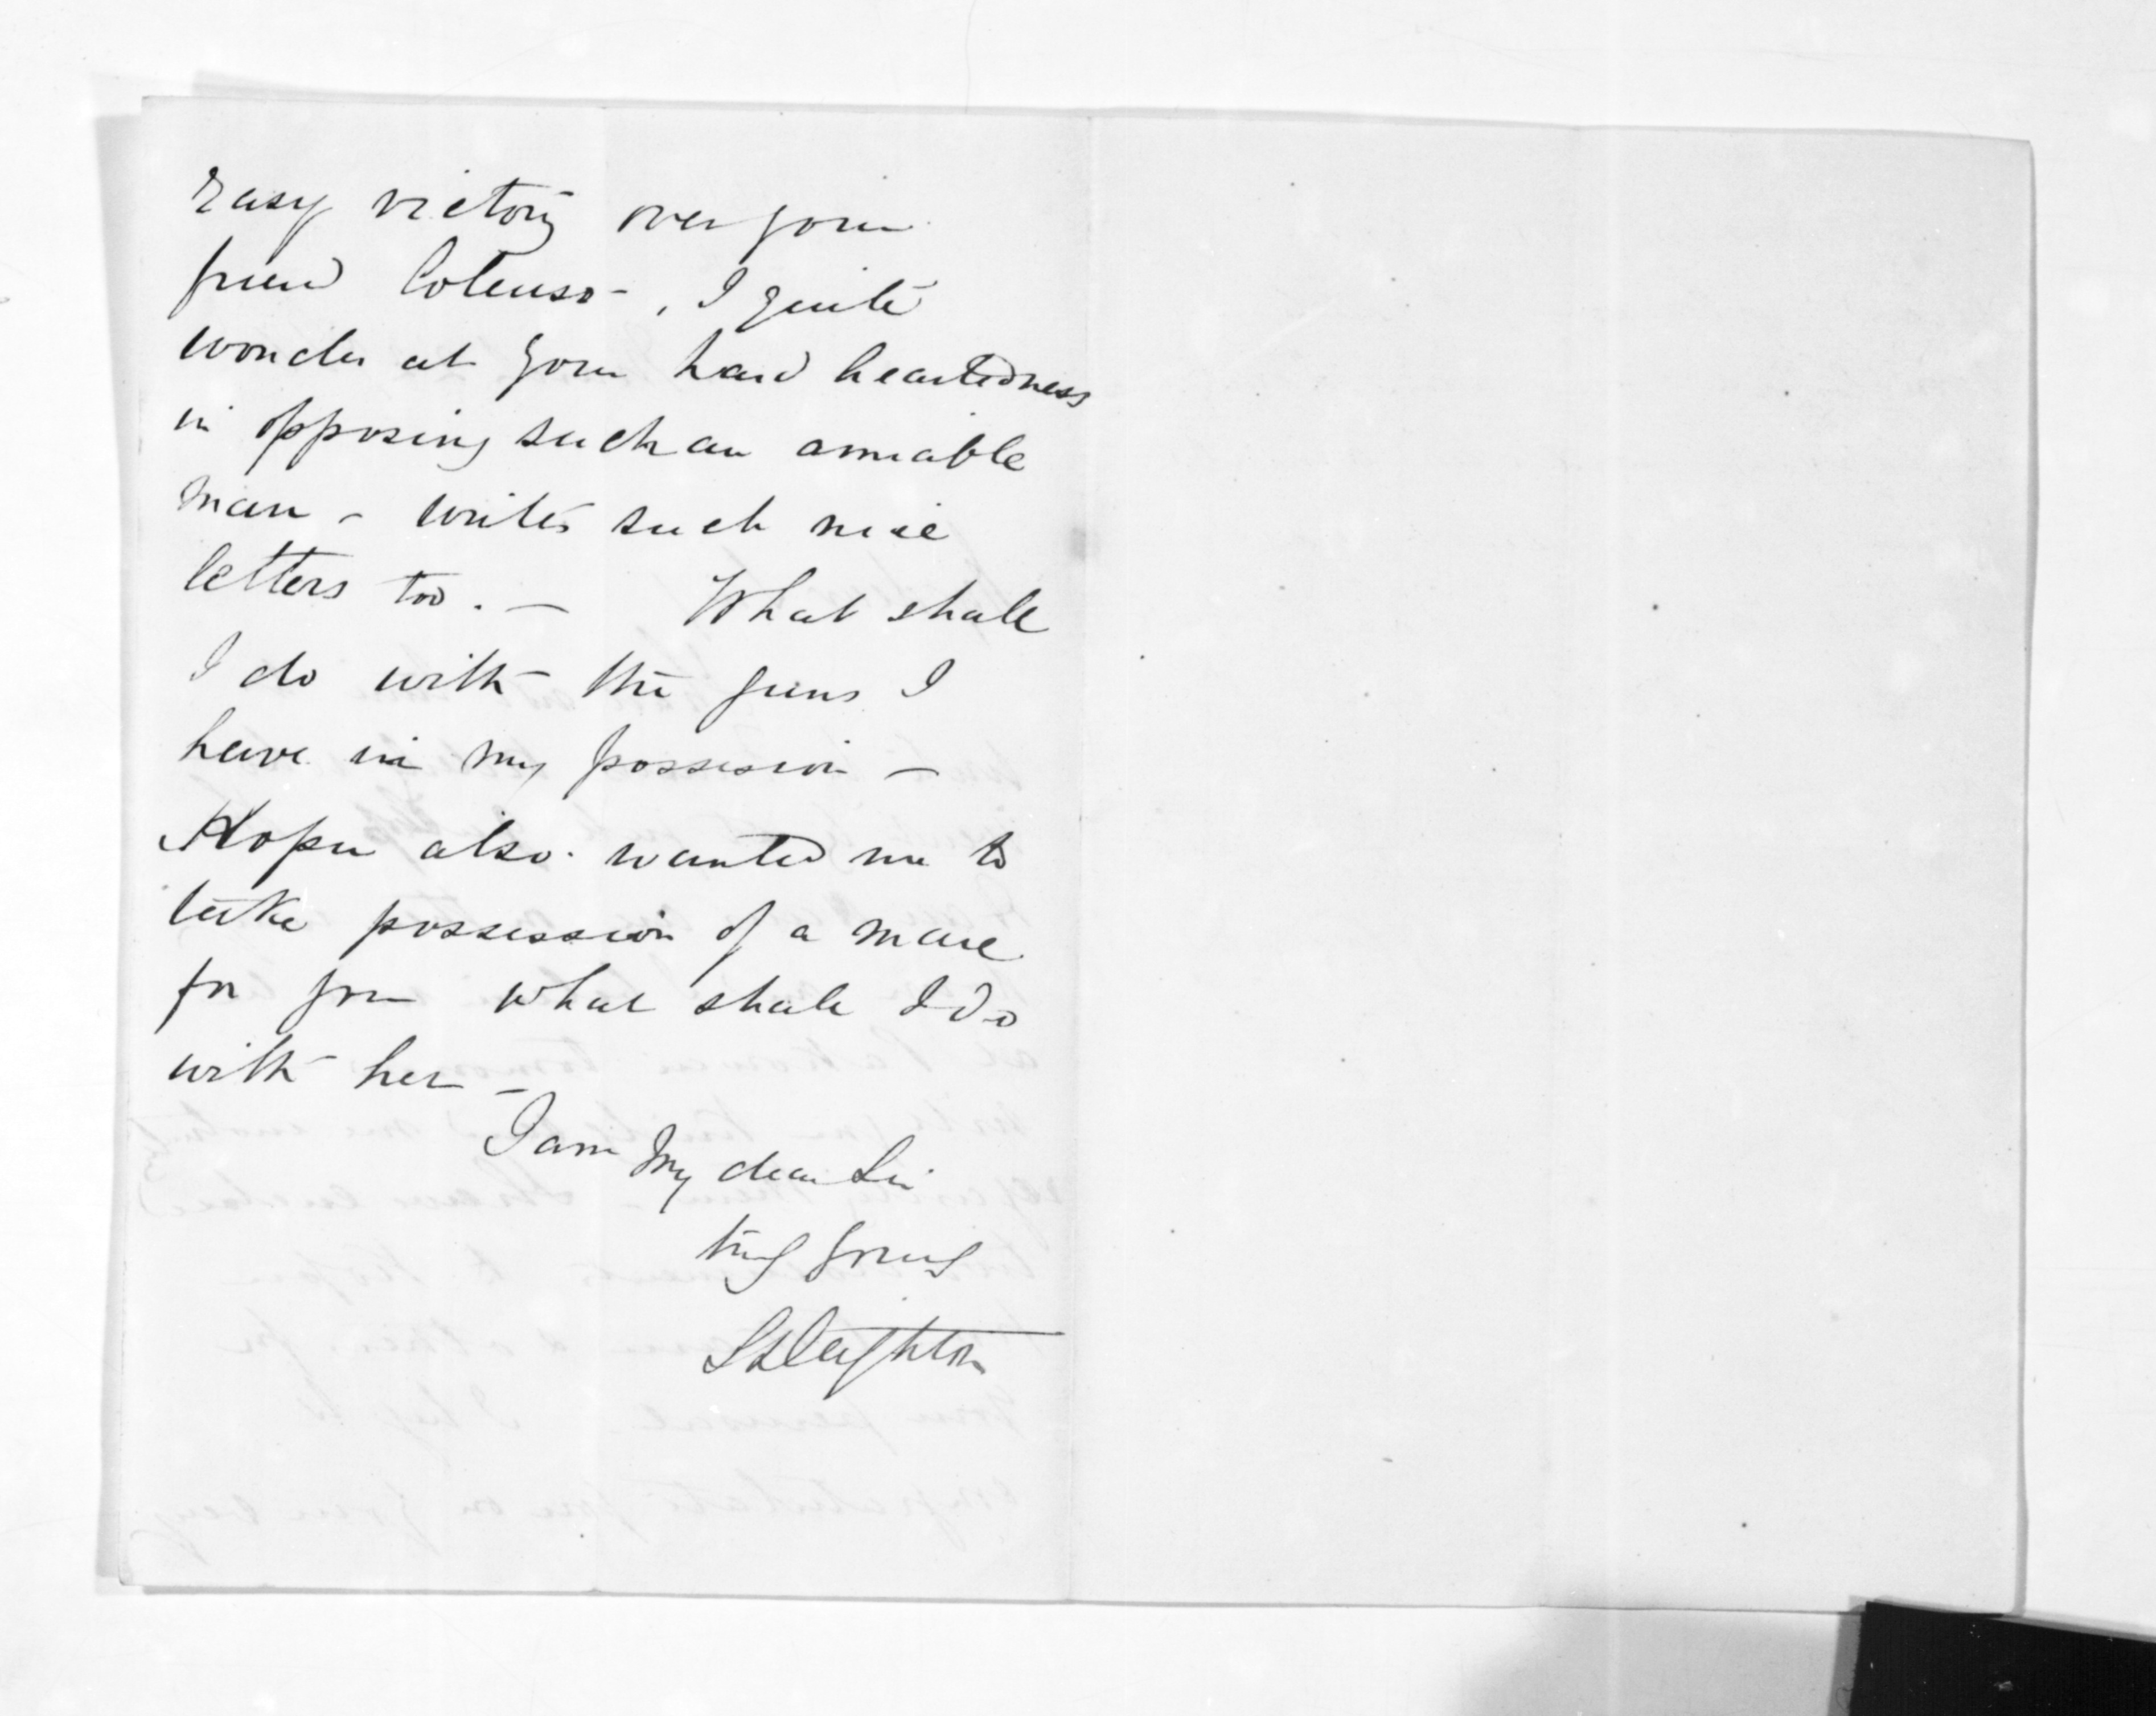 easy victory over your
friend Colenso -, I quite
wonder at your hard heartedness
in opposing such an amiable
man - writes such nice
letters too. - What shall
I do with the guns I
have in my possesion -
Hopu also wanted me to
take possession of a mare
for you what shall I do
with her -
I am My dear Sir
truly yours
S Deighton